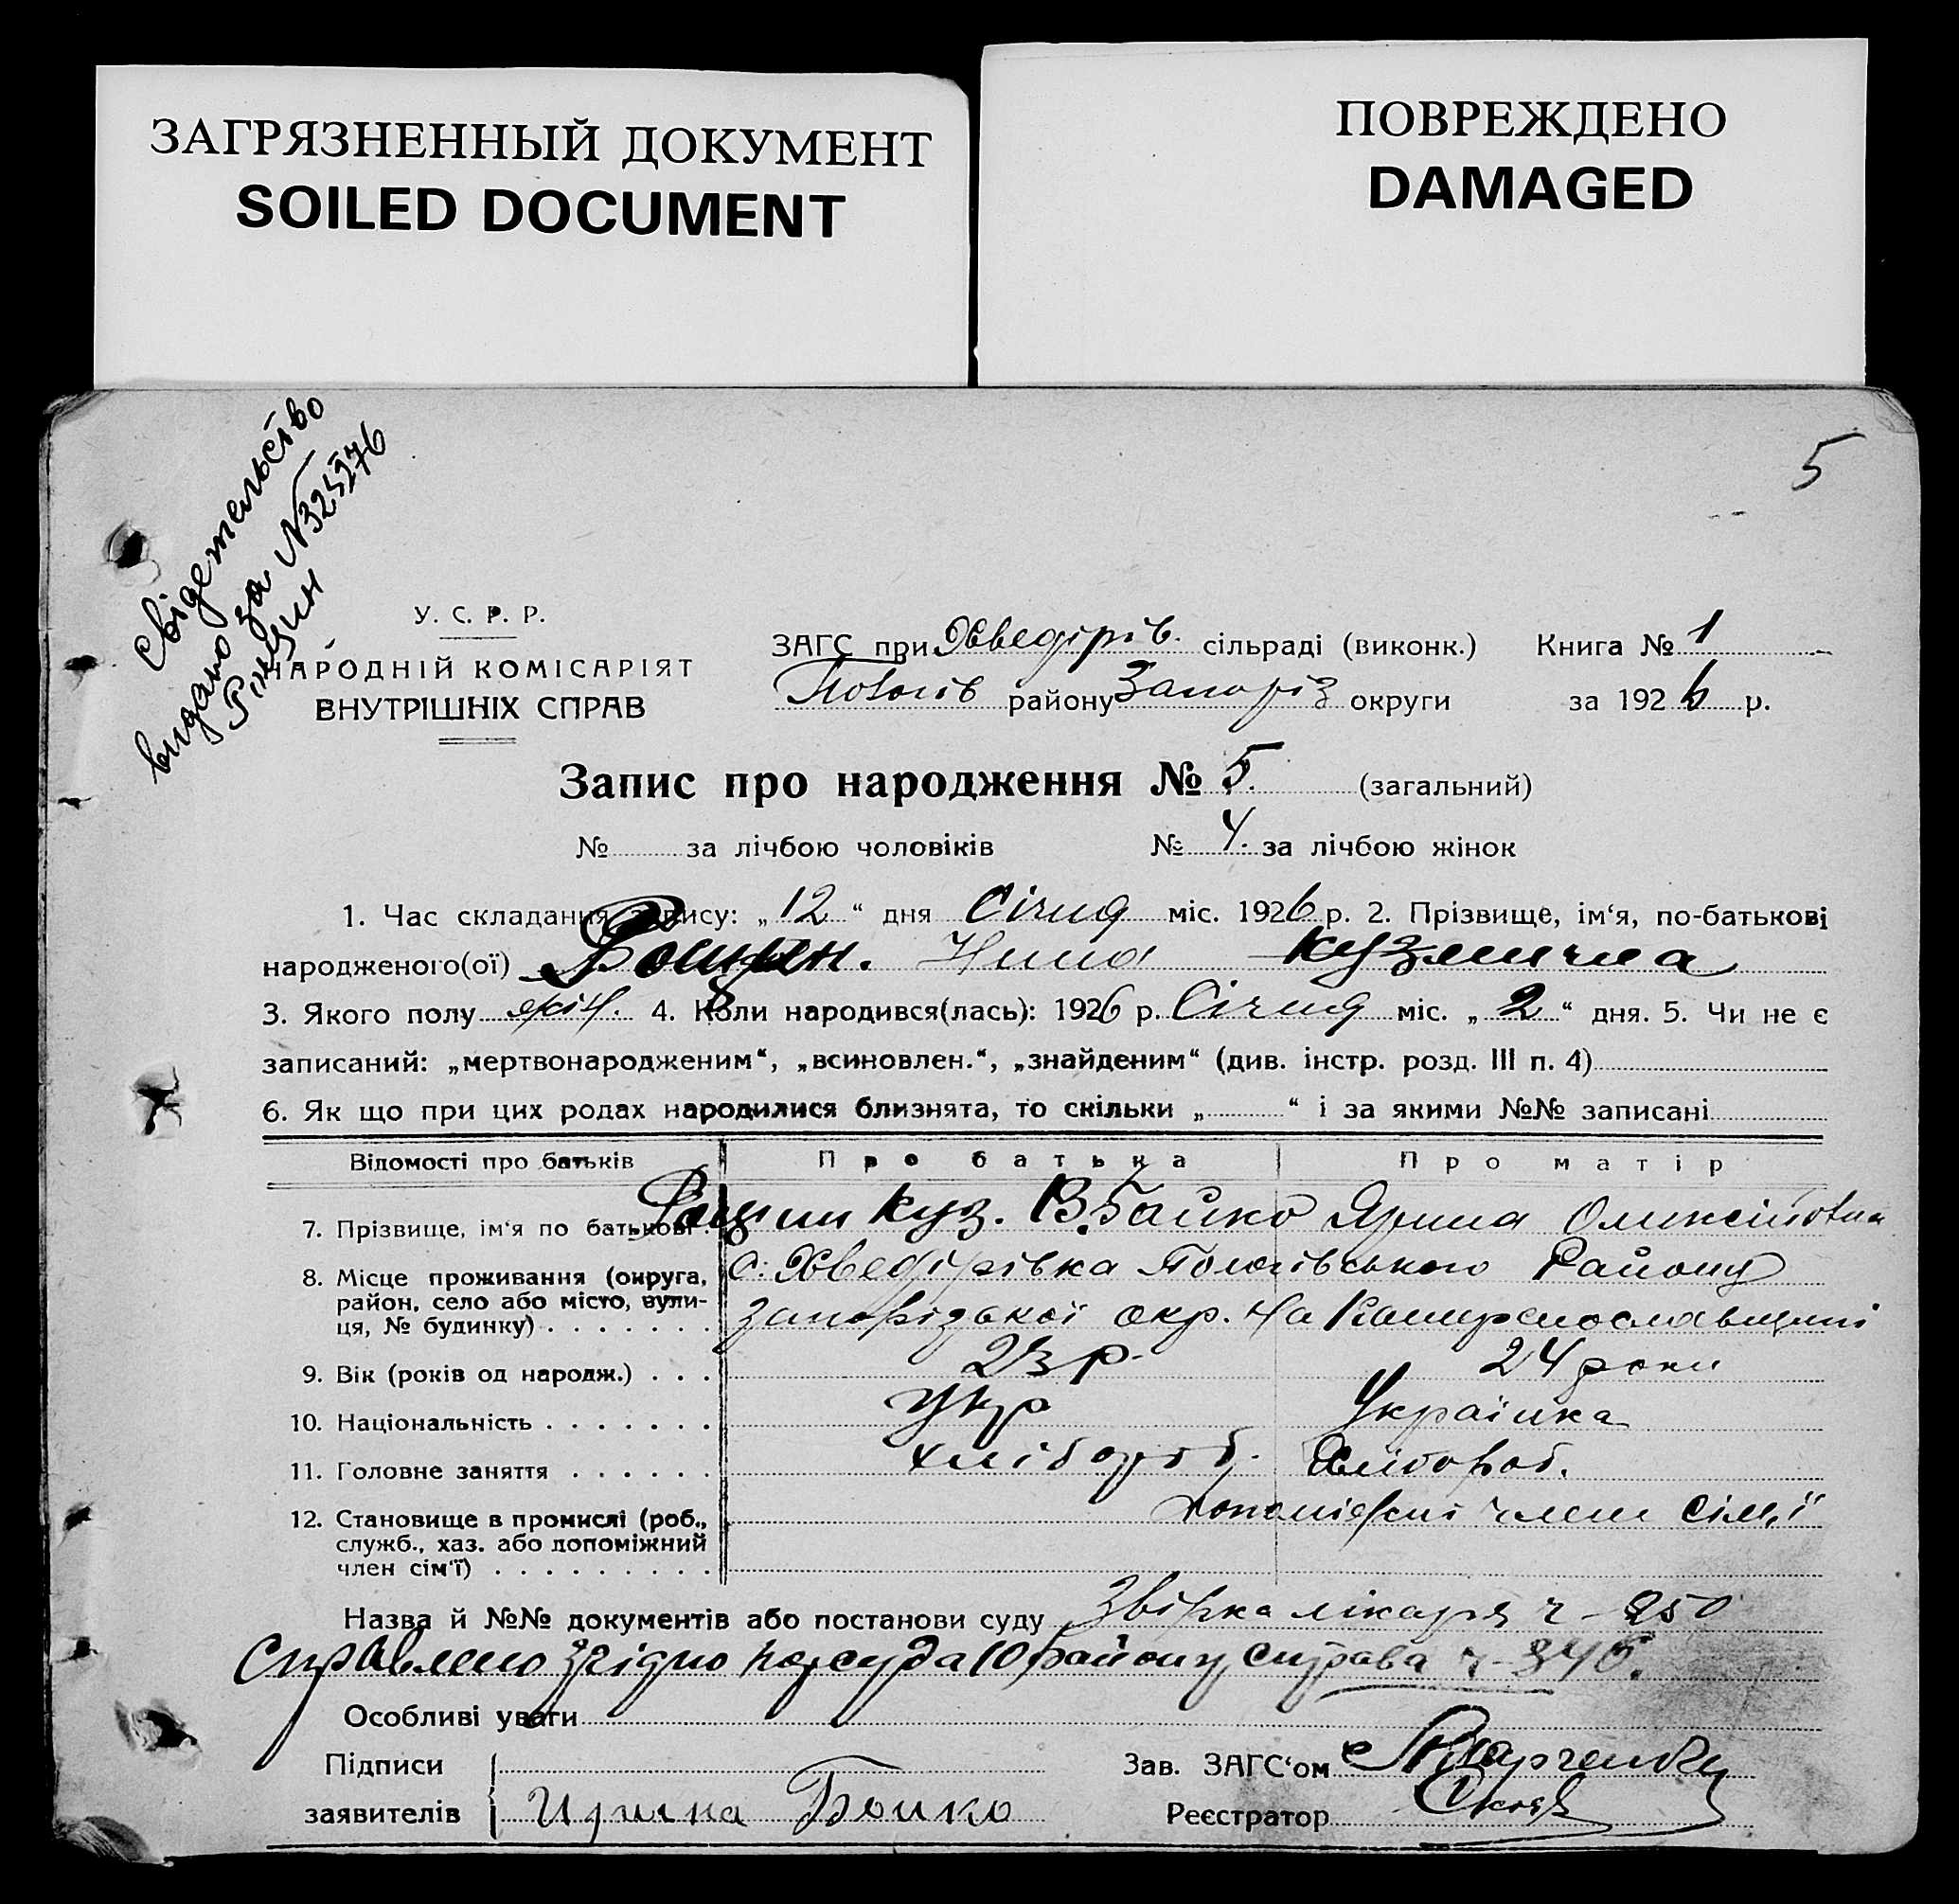 ЗАГРЯЗНЕННЫЙ ДОКУМЕНТ
SOILED DOCUMENT
ПОВРЕЖДЕНО
DAMAGED
5
Свідетельство
видано за №325276
У. С. Р. Р.
НАРОДНІЙ КОМІСАРІЯТ
ВНУТРІШНІХ СПРАВ
ЗАГС при Хведірів. сільраді (виконк.) Книга № 1
Пологів району Запоріз округи за 1926 р.
Запис про народження № 5. (загальний)
№ за лічбою чоловіків № 4. за лічбою жінок
1. Час складання запису: „12“ дня Січня міс. 1926 р. 2. Прізвище, ім‘я, по-батькові
народженого(ої) Нина Кузмична
3. Якого полу жін. 4. Коли народився(лась): 1926 р. Січня міс. „2“ дня. 5. Чи не є
записаний: „мертвонародженим“, „всиновлен.“, „знайденим“ (див. інстр. розд. III п. 4)
6. Як що при цих родах народилися близнята, то скільки „ “ і за якими №№ записані
Відомості про батьків Про батька Про матір
7. Прізвище, ім‘я по батькові Куз. В. Бойко Ярина Олексійовна
8. Місце проживання (округа, район, село або місто, вулиця, № будинку) с. Хведірівка Пологівського Району
Запорізької окр. на Катиренославщині
9. Вік (років од народж.) 23 р. 24 роки
10. Національність Укр Українка
11. Головне заняття хлібороб. Хлібороб.
12. Становище в промислі (роб., служб., хаз. або допоміжний член сім‘ї) допоміжні член сім,ї
Назва й №№ документів або постанови суду Звірка лікаря ч - 250
Справлено згідно нарсуда 10 району справа ч - 340.
Особливі уваги
Підписи
заявителів Ирина Бойко
Зав. ЗАГС‘ом
Реєстратор